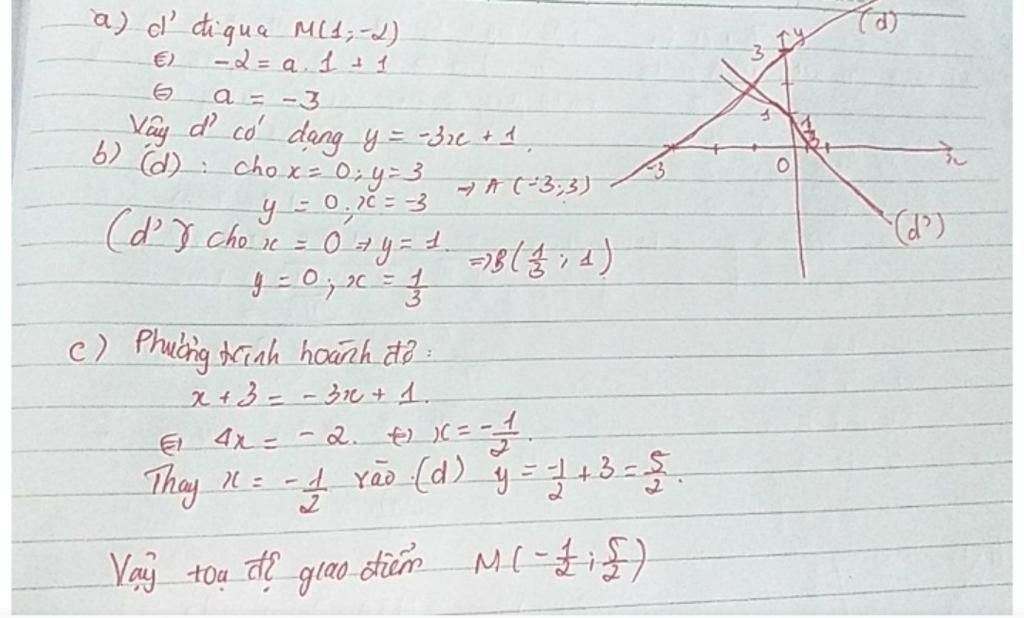 a) d' đi qua M(1;-2)
⇔ -2 = a.1 + 1
⇔ a = -3
Vậy d' có dạng y = -3x + 1.
b) (d): cho x = 0; y = 3
y = 0; x = -3 → A(-3;3)
(d') cho x = 0 → y = 1.
y = 0; x = 1/3 ⇒ B(1/3; 1)
(d)
y
3
1
1/3
-3
O
x
(d')
c) Phương trình hoành độ:
x + 3 = -3x + 1.
⇔ 4x = -2. ⇔ x = -1/2.
Thay x = -1/2 vào (d) y = -1/2 + 3 = 5/2.
Vậy toạ độ giao điểm M(-1/2; 5/2)